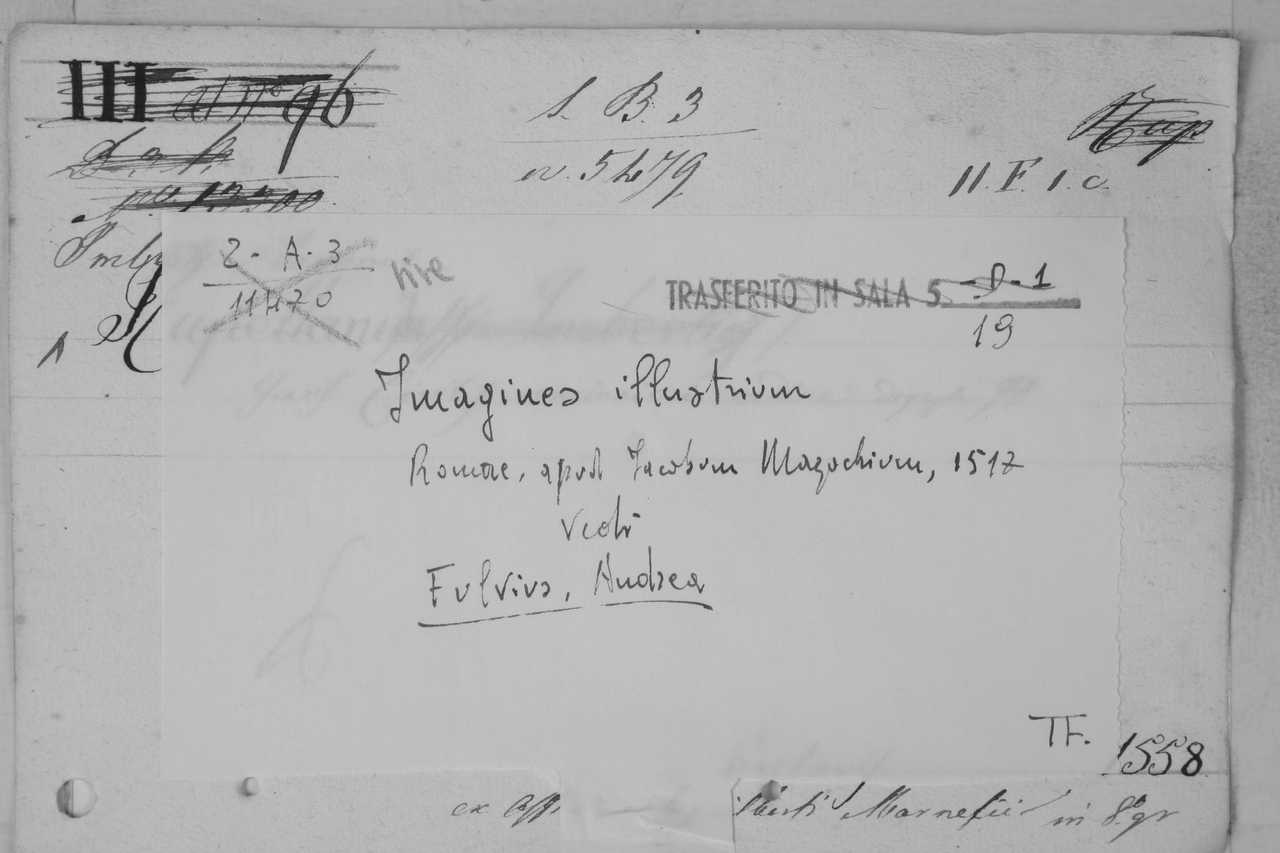 III al n° 96
S. B. 3
n. 5479
II. F. 1. c.
2 - A - 3
11470
TRASFERITO IN SALA 5 - D - 1
19
Imagines illustrium
Romae, apud Jacobum Mazochium, 1517
Vedi
Fulvius, Andrea
TF.
1558
ex off.
Marnefii in 8.° gr